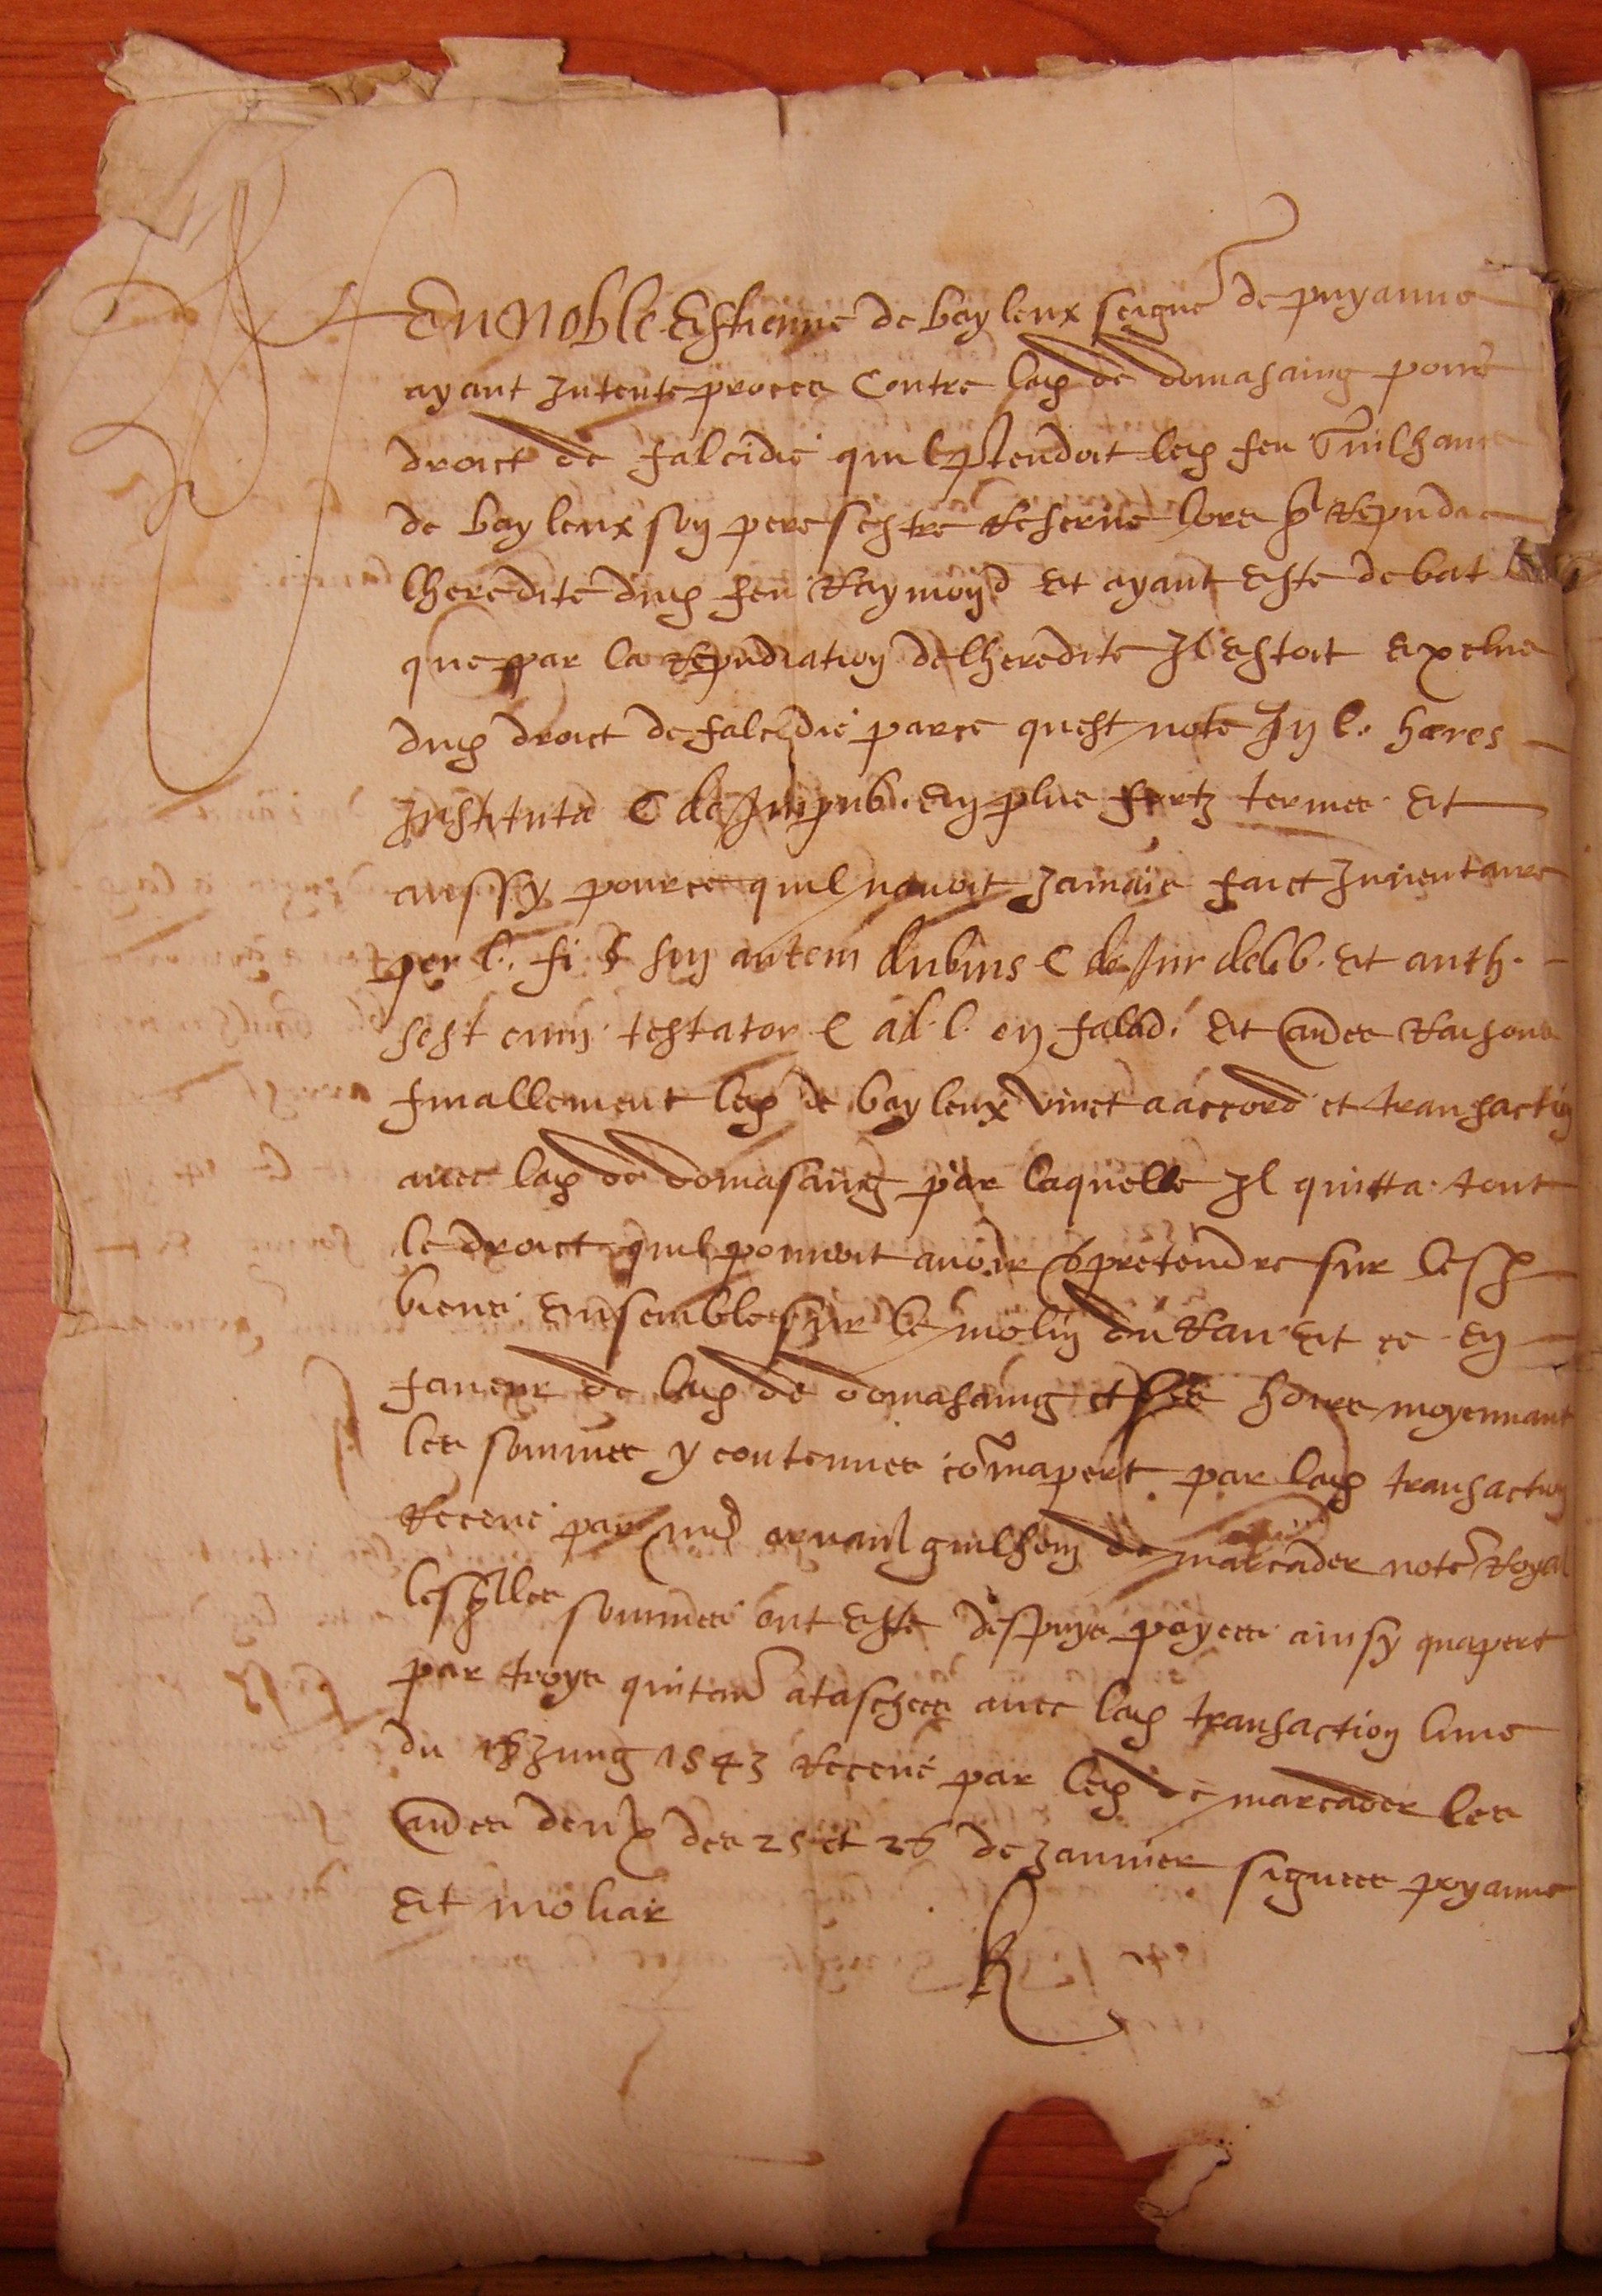 Feu noble Estienne de bayleux seigne de puyanne
ayant Intente proces Contre lad de domasaing pour
droict de falcidie quil ptendoit led feu Guilhame
de bayleux son pere sestre Reserue lors q Repudia
lheredite dud feu Raymond Et ayant Este debat
que par la Repudiation de lheredite Il Estoit Exclus
dud droict de falcidie parce quest note In l. hæres
Instituta C de Impub. En plus fortz termes Et
aussy pource quil nauoit Jamais faict Inuentaire
per l. fi § sin autem dubius C de Iur delib. Et auth.
sest cum testator C ad l. en falcid. Et aues Raisons
finallement led de bayleux vinct a accord et transaction
auec lad de domasaing par laquelle Il quitta tout
le droict quil pouuoit auoir & pretendre sur lesd
biens Ensembles sur le molin du Rau Et ce En
faueur de lad de domasaing et ses hoirs moyennant
les sommes y contenues comapert par lad transaction
Receue par me arnauld guilhem de marcader note Royal
lesqlles sommes ont Este despuys payees ainsy quapert
par troys quitans atasches auec lad transaction lune
du 18 Jung 1543 Receue par led de marcader les
aues deux des 25 et 26 de Januier signees poyanne
Et moliar